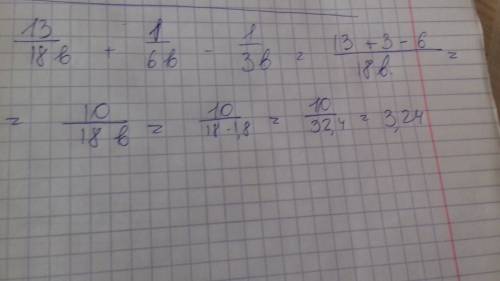 13/18в + 1/6в - 1/3в = (13 + 3 - 6)/18в. =
= 10/18в = 10/(18-1,8) = 10/32,4 = 3,24